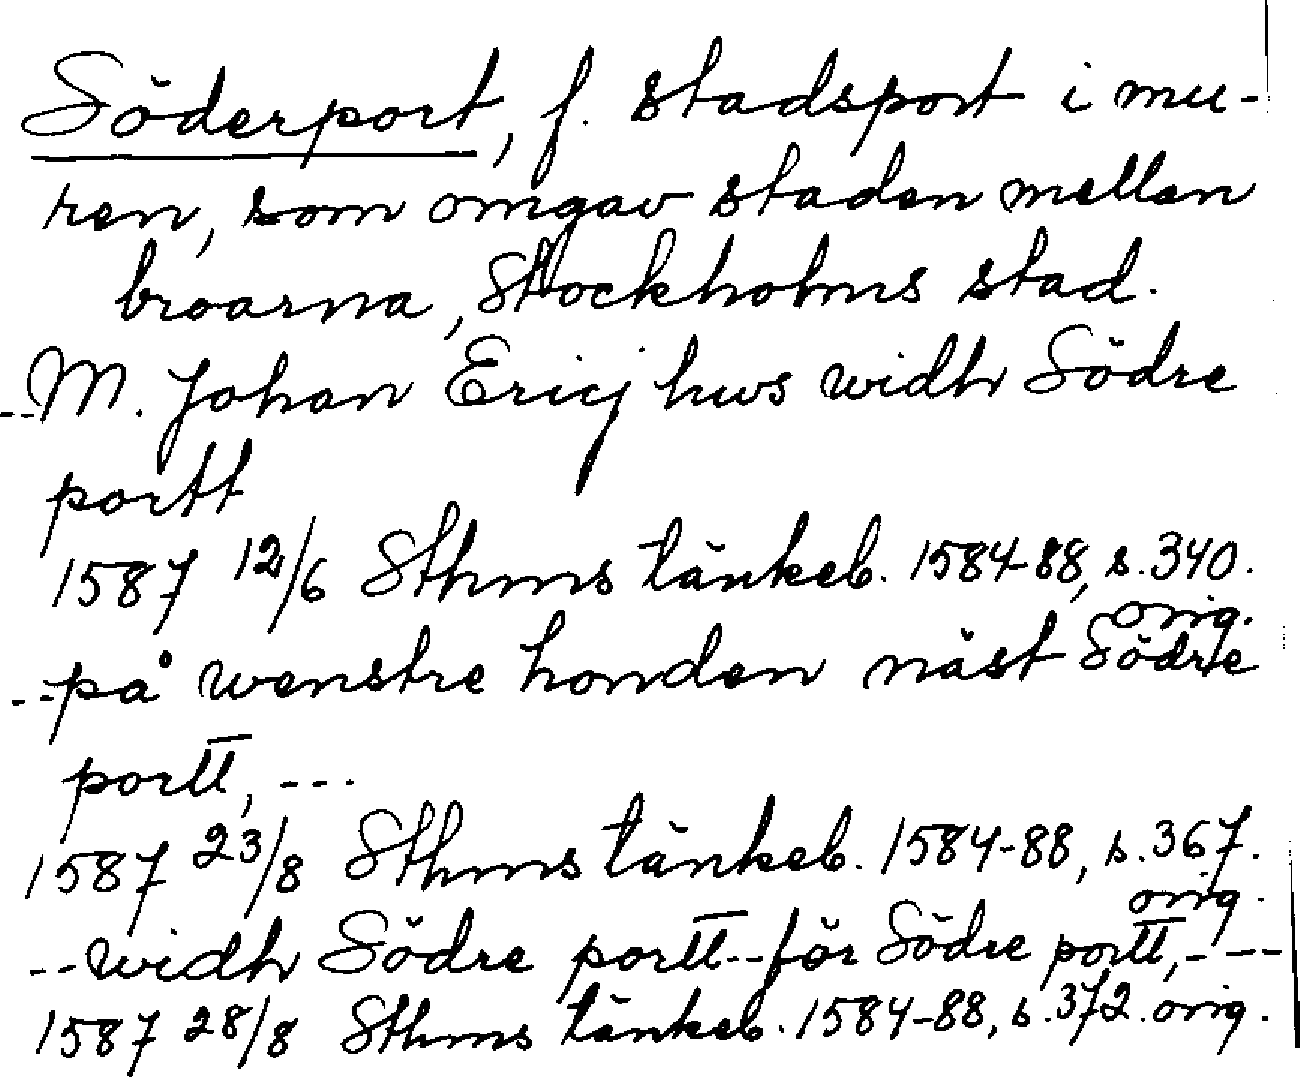 Söderport, f. stadsport i mu-
ren, som omgav staden mellan
broarna, Stockholms stad.
--M. Johan Ericj hws widh Södre
portt
1587 12/6 Sthms tänkeb. 1584-88, s. 340.
orig.
--på wenstre honden näst Södre
portt, ---
1587 23/8 Sthms tänkeb. 1584-88, s. 367.
orig.
--widh Södre portt--för Södre portt,---
1587 28/8 Sthms tänkeb. 1584-88, s. 372. orig.